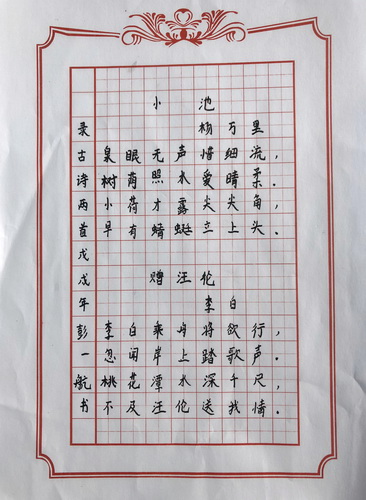 小池
杨万里
泉眼无声惜细流,
树荫照水爱晴柔.
小荷才露尖尖角,
早有蜻蜓立上头.
赠汪伦
李白
李白乘舟将欲行,
忽闻岸上踏歌声.
桃花潭水深千尺,
不及汪伦送我情.
录古诗两首戊戌年彭一航书